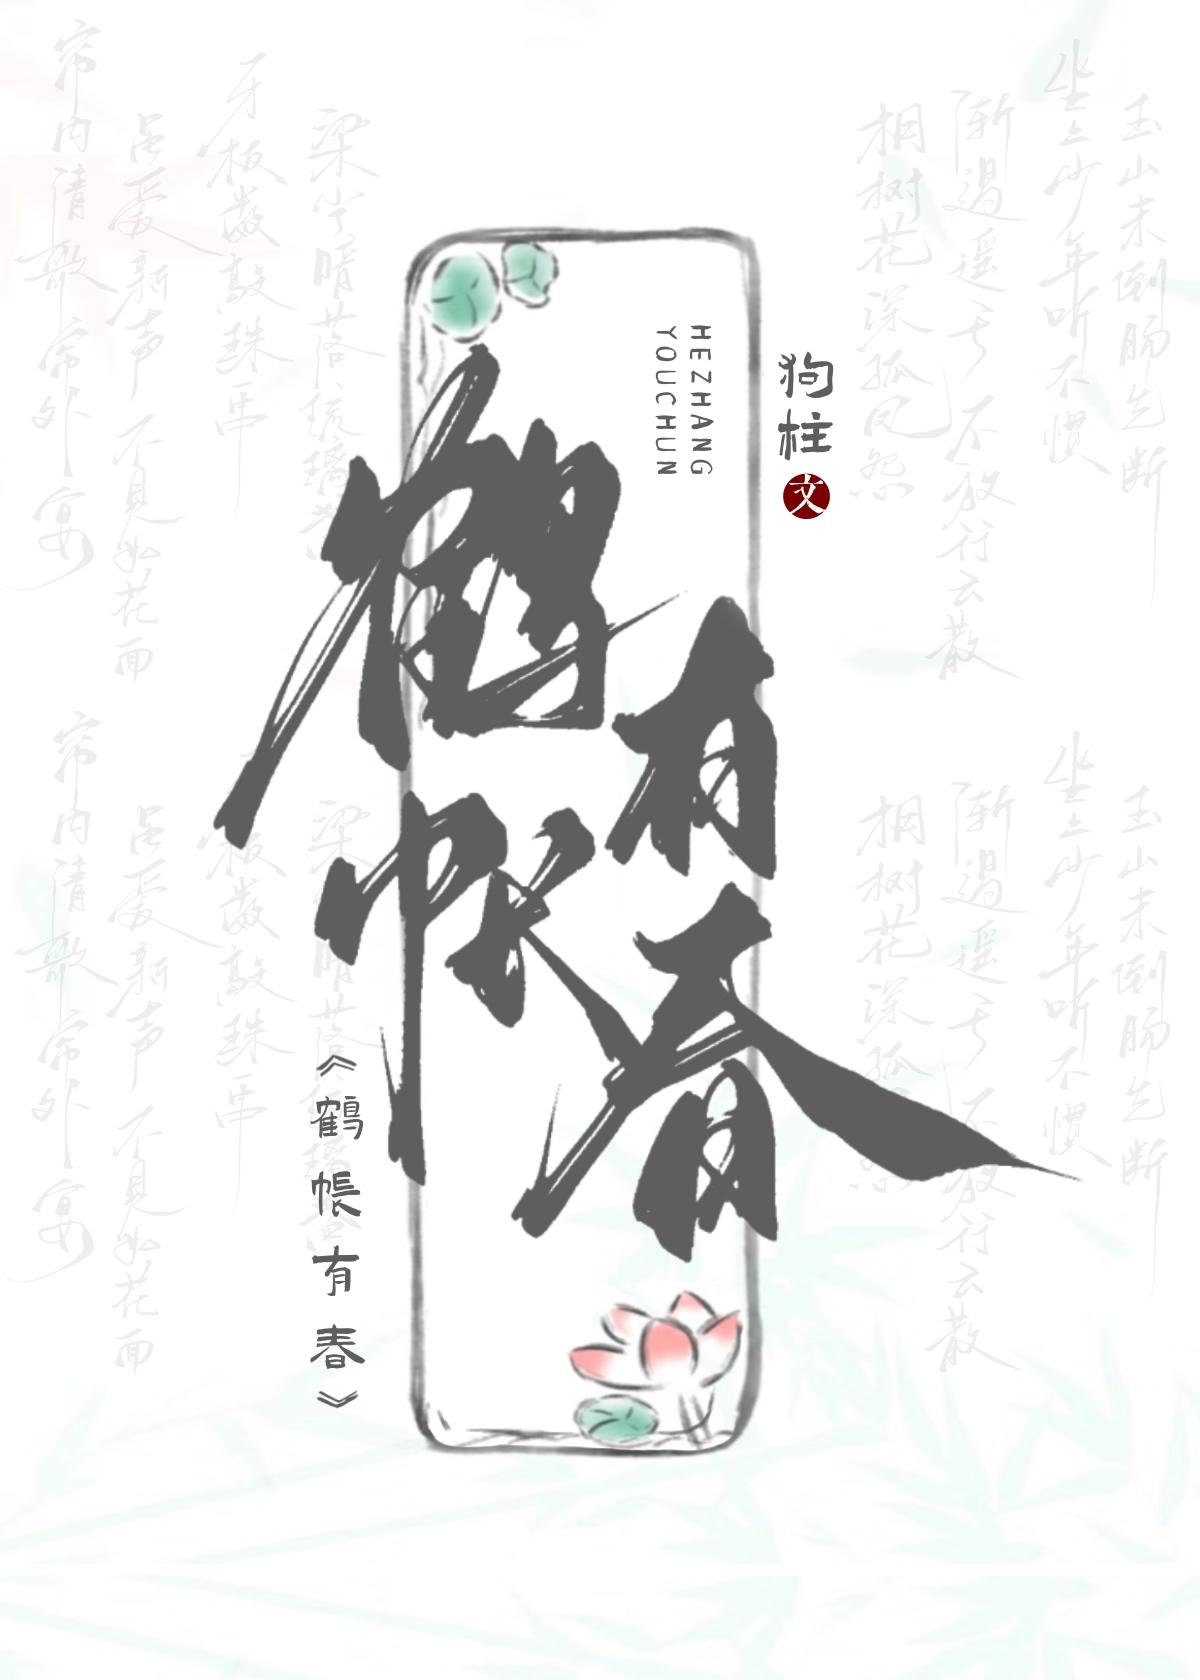 鹤帐
有春
HEZHANG
YOUCHUN
狗柱
文
《鶴帳有春》
帘内清歌帘外宴
虽爱新声 不见如花面
牙板数敲珠一串
梁尘暗落琉璃盏
桐树花深孤凤怨
渐遏遥天 不放行云散
坐上少年听不惯
玉山未倒肠先断
帘内清歌帘外宴
虽爱新声 不见如花面
牙板数敲珠一串
桐树花深孤
渐遏遥天 不放行云散
坐上少年听不惯
玉山未倒肠先断